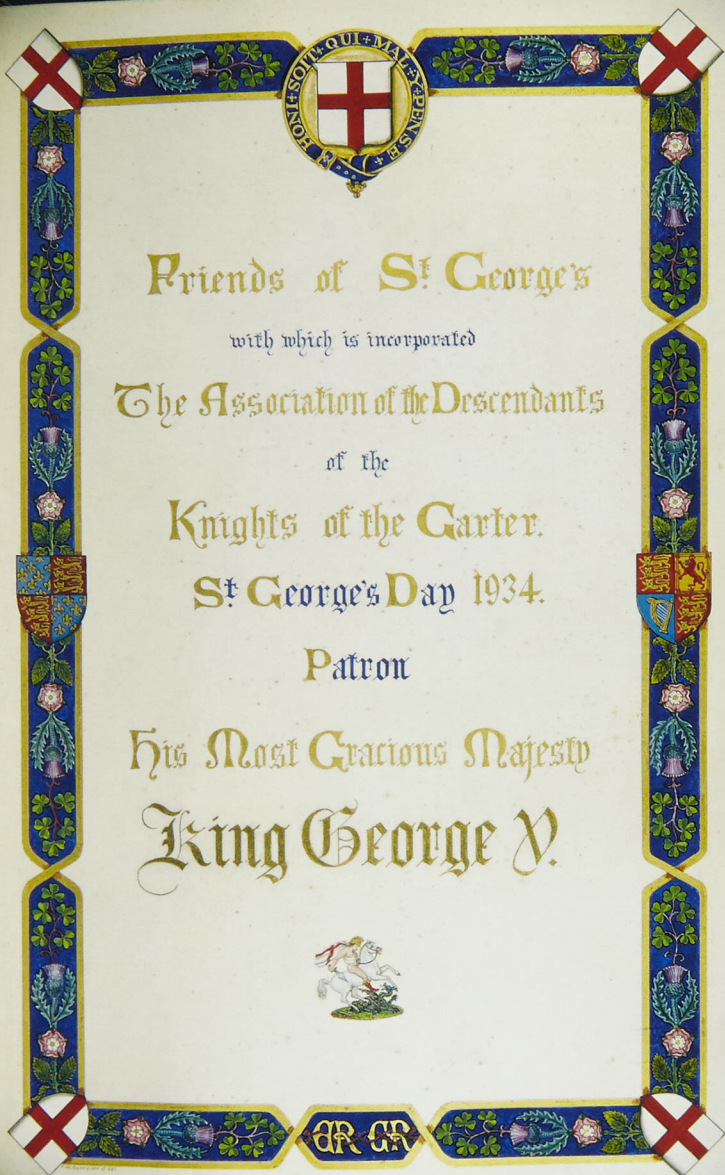 HONI + SOIT + QUI + MAL + Y + PENSE +
Friends of St. George's
with which is incorporated
The Association of the Descendants
of the
Knights of the Garter.
St. George's Day 1934.
Patron
His Most Gracious Majesty
King George V.
GR GR